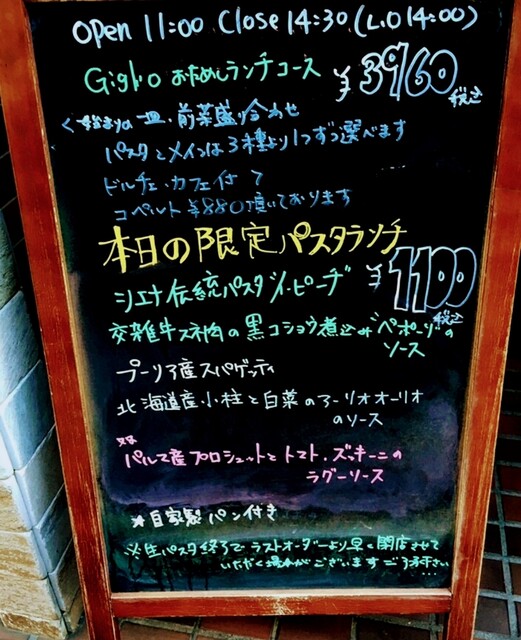 Open 11:00 Close 14:30 (L.O 14:00)
Giglio おためしランチコース ¥3960 税込
始まりの一皿、前菜盛り合わせ
パスタとメインは3種より1つずつ選べます
ドルチェ・カフェ付
コペルト¥880頂いております
本日の限定パスタランチ
シエナ伝統パスタ ピーチ ¥1100 税込
交雑牛スネ肉の黒コショウ煮込み"ペポーゾ"の
ソース
プーリア産スパゲッティ
北海道産小柱と白菜のアーリオオーリオ
のソース
パルマ産プロシュットとトマト、ズッキーニの
ラグーソース
※自家製パン付き
※生パスタ終了でラストオーダーより早く閉店させて
いただく場合がございます ご了承下さい…